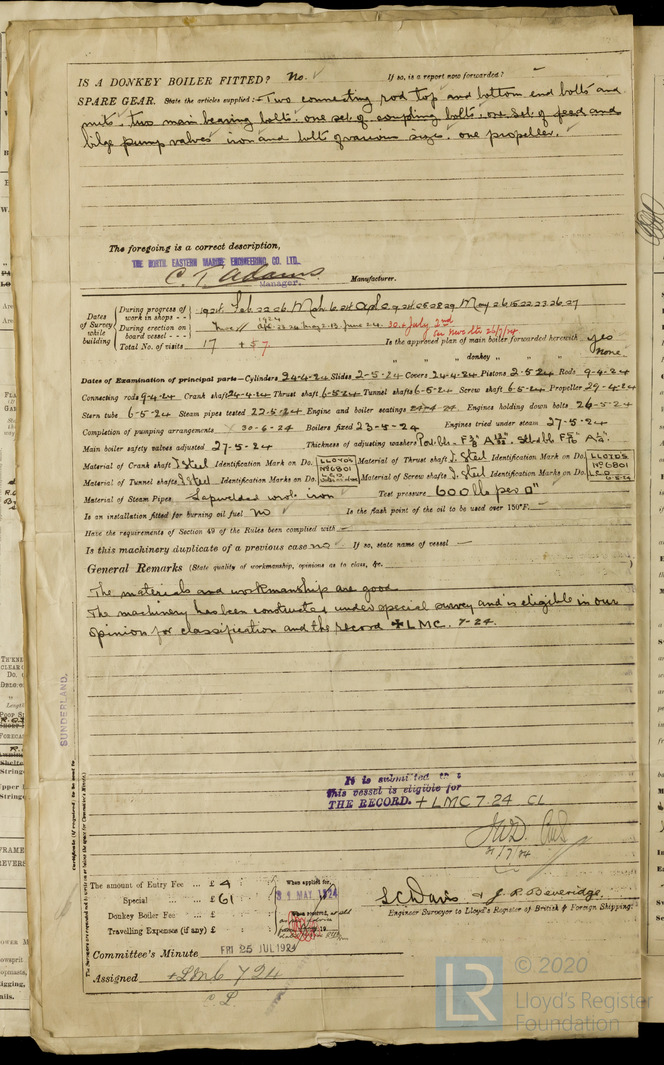 IS A DONKEY BOILER FITTED? No. If so, is a report now forwarded? —
SPARE GEAR. State the articles supplied:— Two connecting rod top and bottom end bolts and
nuts, two main bearing bolts, one set of coupling bolts, one set of feed and
bilge pump valves iron and bolts of various sizes, one propeller.
The foregoing is a correct description,
THE NORTH EASTERN MARINE ENGINEERING CO. LTD.
C. T. Adams Manager. Manufacturer.
Dates of Survey while building
During progress of work in shops - - 1924. Feb 22 26 Mch 6 24 Apl 2 9 24 25 28 29 May 2 6 15 22 23 26 27
During erection on board vessel - - -
Total No. of visits 17 + 57. Is the approved plan of main boiler forwarded herewith yes
" " " donkey " " " None.
Dates of Examination of principal parts—Cylinders 24-4-24 Slides 2-5-24 Covers 24-4-24 Pistons 2-5-24 Rods 9-4-24
Connecting rods 9-4-24 Crank shaft 24-4-24 Thrust shaft 6-5-24 Tunnel shafts 6-5-24 Screw shaft 6-5-24 Propeller 29-4-24
Stern tube 6-5-24 Steam pipes tested 22-5-24 Engine and boiler seatings Engines holding down bolts 26-5-24
Completion of pumping arrangements 30-6-24 Boilers fixed 23-5-24 Engines tried under steam 27-5-24
Main boiler safety valves adjusted 27-5-24 Thickness of adjusting washers
Material of Crank shaft I Steel Identification Mark on Do. LLOYDS No 6801 LCD Material of Thrust shaft I. Steel Identification Mark on Do. LLOYDS No 6801 LCD 6-5-24
Material of Tunnel shafts I Steel Identification Marks on Do. Material of Screw shafts I. Steel Identification Marks on Do.
Material of Steam Pipes Lapwelded wrot. iron Test pressure 600 lbs per □"
Is an installation fitted for burning oil fuel No Is the flash point of the oil to be used over 150°F. —
Have the requirements of Section 49 of the Rules been complied with —
Is this machinery duplicate of a previous case no If so, state name of vessel —
General Remarks (State quality of workmanship, opinions as to class, &c.
The materials and workmanship are good.
The machinery has been constructed under special survey and is eligible in our
opinion for classification and the record +LMC. 7-24.
SUNDERLAND.
It is submitted that
this vessel is eligible for
THE RECORD. + LMC 7.24 CL
The amount of Entry Fee ... £ 4 : : When applied for,
Special ... ... £ 61 : : 31 MAY 1924
Donkey Boiler Fee ... £ : :
Travelling Expenses (if any) £ : :
S C Davis & J. R. Beveridge.
Engineer Surveyor to Lloyd's Register of British & Foreign Shipping.
Committee's Minute FRI 25 JUL 1924
Assigned + LMC 7 24
C. L.
© 2020
Lloyd's Register
Foundation
LR